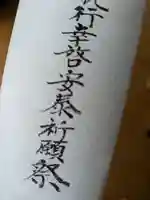 行幸啓安泰祈願祭